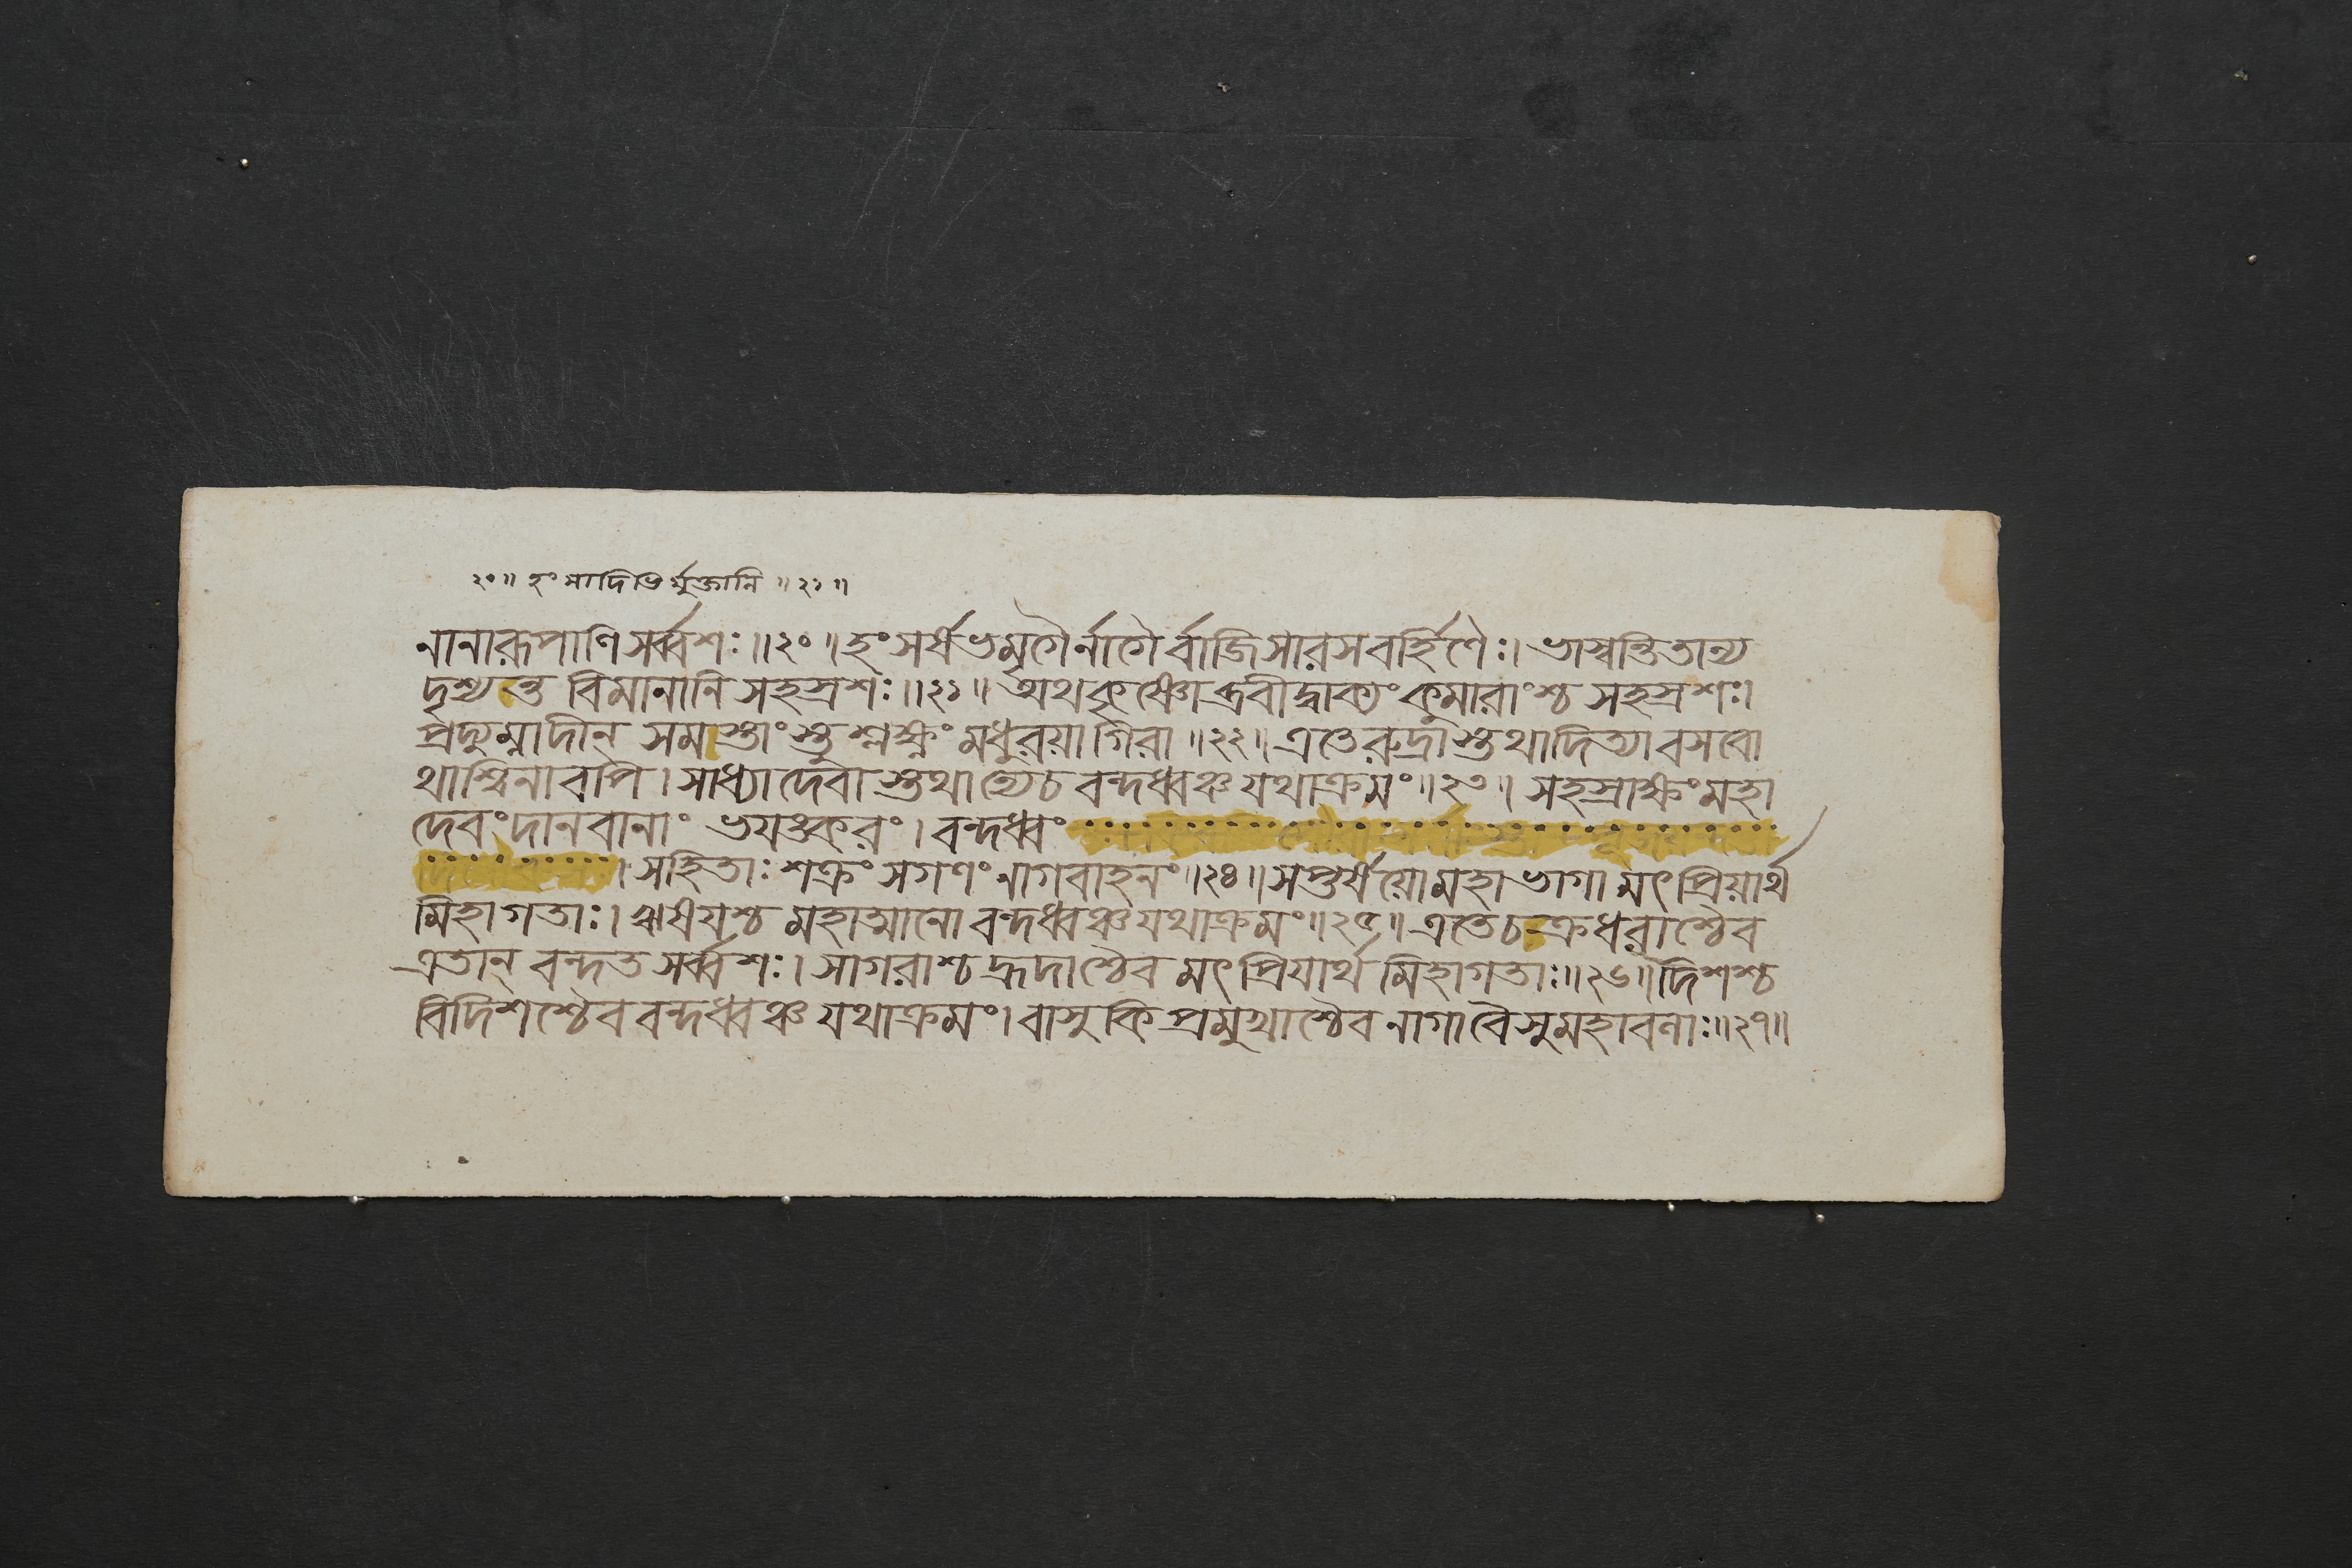 ২০॥ হংসাদিভির্মুক্তানি॥২১॥
নানারূপাণি সর্ব্বশঃ॥২০॥ হংসর্ষভমৃগৈর্নাগৈর্বাজিসারসবর্হিণৈঃ। ভাস্বন্তি তান্য
দৃশ্যন্ত বিমানানি সহস্রশঃ॥২১॥ অথ কৃষ্ণোব্রবীদ্বাক্যং কুমারাংশ্চ সহস্রশঃ।
প্রদ্যুম্নাদীন্ সমস্তাংস্তু শ্লক্ষ্ণং মধুরয়া গিরা॥২২॥ এতে রুদ্রাস্তথাদিত্যা বসবো
থাশ্বিনাবপি। সাধ্যা দেবাস্তথান্যেচ বন্দধ্বঞ্চ যথাক্রমং॥২৩॥ সহস্রাক্ষং মহা
দেবং দানবানাং ভয়ঙ্করং। বন্দধ্বং
। সহিতাঃ শক্রং সগণং নাগবাহনং॥২৪॥ সপ্তর্ষয়ো মহাভাগা মৎপ্রিয়ার্থ
মিহাগতাঃ। ঋষয়শ্চ মহাত্মানো বন্দধ্বঞ্চ যথাক্রমং॥২৫॥ এতে চক্রধরাশ্চৈব
এতান্ বন্দত সর্ব্বশঃ। সাগরাশ্চ হ্রদাশ্চৈব মৎপ্রিয়ার্থমিহাগতাঃ॥২৬॥ দিশশ্চ
বিদিশশ্চৈব বন্দধ্বঞ্চ যথাক্রমং। বাসুকিপ্রমুখাশ্চৈব নাগা বৈ সুমহাবলাঃ॥২৭॥